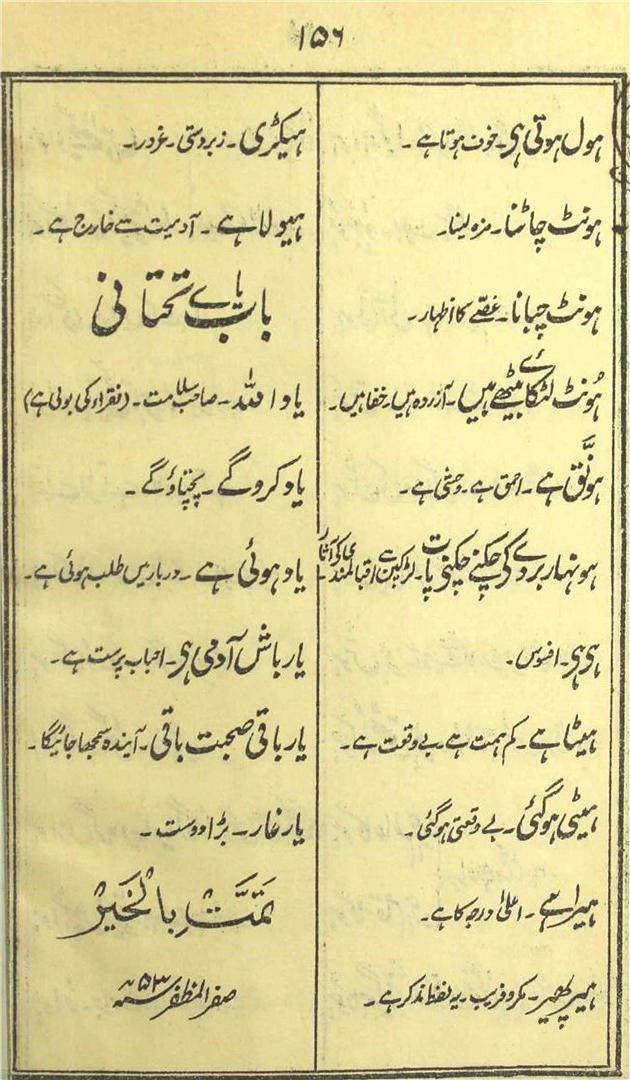 ۱۵۶
ہول ہوتی ہی۔ خوف ہوتا ہے۔
ہونٹ چاٹنا۔ مزہ لینا۔
ہونٹ چبانا۔ غصّے کا اظہار۔
ہُونٹ لٹکائے بیٹھے ہیں۔ آزردہ ہیں۔ خفا ہیں۔
ہونَّق ہے۔ احمق ہے۔ وحشی ہے۔
ہونہار بروے کی چکنے چکنے پات۔ لڑکپن سے اقبالمندی کو آثار
ہی ہی۔ افسوس۔
ہیٹا ہے۔ کم ہمت ہے۔ بے وقعت ہے۔
ہیٹی ہوگئی۔ بے وقعتی ہوگئی۔
ہیرا ہے۔ اعلیٰ درجہ کا ہے۔
ہیر پھیر۔ مکر و فریب۔ یہ لفظ مذکر ہے۔
ہیکڑی۔ زبردستی۔ غرور۔
ہیولا ہے۔ آدمیت سے خارج ہے۔
باب یائے تحتانی
یاد اللہ۔ صاحب سلامت۔ (فقراء کی بولی ہے)
یاد کروگے۔ پچتاؤگے۔
یاد ہوئی ہے۔ دربار میں طلب ہوئی ہے۔
یارباش آدمی ہی۔ احباب پرست ہے۔
یار باقی صحبت باقی۔ آیندہ سمجھا جائیگا۔
یار غار۔ بڑا دوست۔
تَمَّتْ بِالْخَیْر
صفر المظفر ۵۳ سنہ ھ